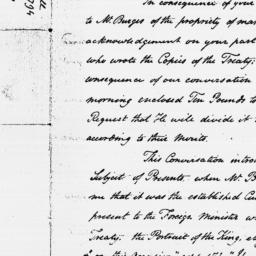 In consequence of your
to Mr. Burges of the propriety of mak
acknowledgement on your part
who wrote the Copies of the Treaty:
consequence of our conversation
morning enclosed Ten Pounds to
Request that He will divide it
according to their Merits.
This Conversation introd
Subject of Presents. when Mr. B
me that it was the established Cus
present to the Foreign Minister w
Treaty: the Portrait of the King, e
1794